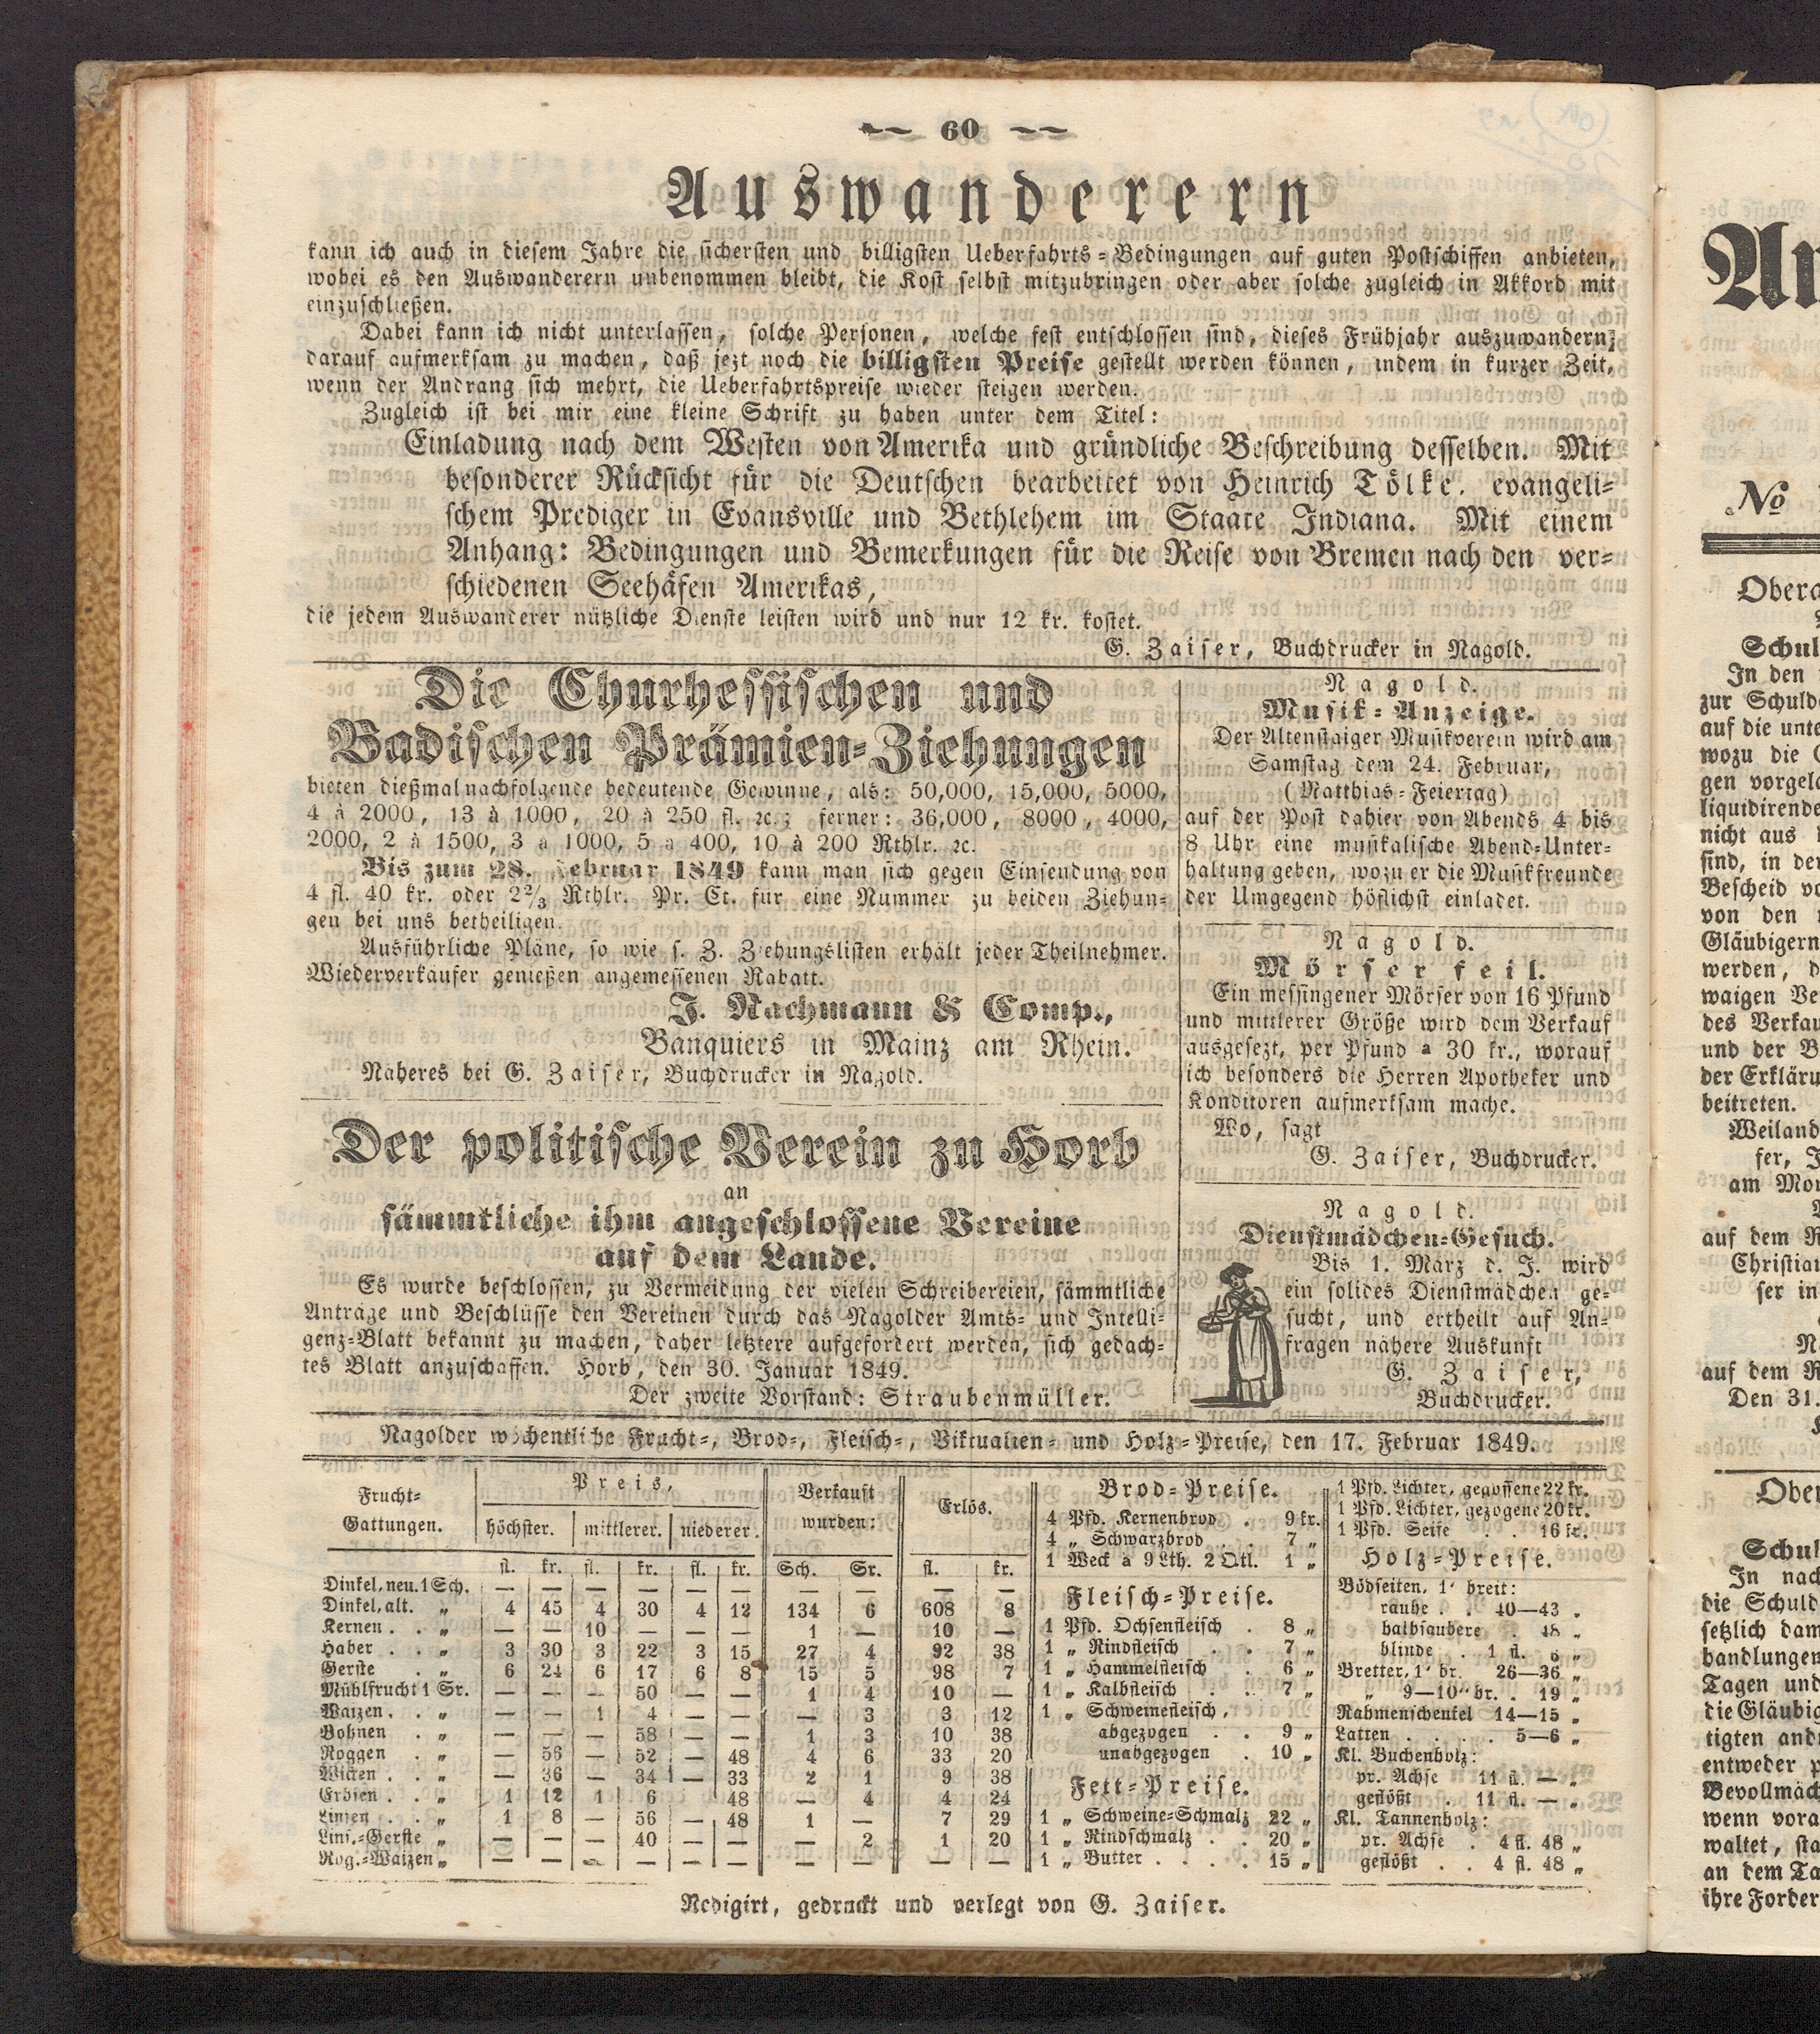 60
Auswanderern
kann ich auch in diesem Jahre die sichersten und billigsten Ueberfahrts-Bedingungen auf guten Postschiffen anbieten,
wobei es den Auswanderern unbenommen bleibt, die Kost selbst mitzubringen oder aber solche zugleich in Akkord mit
einzuschließen.
Dabei kann ich nicht unterlassen, solche Personen, welche fest entschlossen sind, dieses Frühjahr auszuwandern,
darauf aufmerksam zu machen, daß jezt noch die billigsten Preise gestellt werden können, indem in kurzer Zeit,
wenn der Andrang sich mehrt, die Ueberfahrtspreise wieder steigen werden.
Zugleich ist bei mir eine kleine Schrift zu haben unter dem Titel:
Einladung nach dem Westen von Amerika und gründliche Beschreibung desselben. Mit
besonderer Rücksicht für die Deutschen bearbeitet von Heinrich Tölke, evangeli-
schem Prediger in Evansville und Bethlehem im Staate Indiana. Mit einem
Anhang: Bedingungen und Bemerkungen für die Reise von Bremen nach den ver-
schiedenen Seehäfen Amerikas,
die jedem Auswanderer nützliche Dienste leisten wird und nur 12 kr. kostet.
G. Zaiser, Buchdrucker in Nagold.
Die Churhessischen und
Badischen Prämien-Ziehungen
bieten dießmal nachfolgende bedeutende Gewinne, als: 50,000, 15,000, 5000,
4 à 2000, 13 à 1000, 20 à 250 fl. ꝛc.; ferner: 36,000, 8000, 4000,
2000, 2 à 1500, 3 à 1000, 5 à 400, 10 à 200 Rthlr. ꝛc.
Bis zum 28. Februar 1849 kann man sich gegen Einsendung von
4 fl. 40 kr. oder 2⅔ Rthlr. Pr. Ct. für eine Nummer zu beiden Ziehun-
gen bei uns betheiligen.
Ausführliche Pläne, so wie s. Z. Ziehungslisten erhält jeder Theilnehmer.
Wiederverkäufer genießen angemessenen Rabatt.
J. Nachmann & Comp.,
Banquiers in Mainz am Rhein.
Näheres bei G. Zaiser, Buchdrucker in Nagold.
Der politische Verein zu Horb
an
sämmtliche ihm angeschlossene Vereine
auf dem Lande.
Es wurde beschlossen, zu Vermeidung der vielen Schreibereien, sämmtliche
Anträge und Beschlüsse den Vereinen durch das Nagolder Amts- und Intelli-
genz-Blatt bekannt zu machen, daher letztere aufgefordert werden, sich gedach-
tes Blatt anzuschaffen. Horb, den 30. Januar 1849.
Der zweite Vorstand: Straubenmüller.
Nagold.
Musik-Anzeige.
Der Altenstaiger Musikverein wird am
Samstag dem 24. Februar,
(Matthias-Feiertag)
auf der Post dahier von Abends 4 bis
8 Uhr eine musikalische Abend-Unter-
haltung geben, wozu er die Musikfreunde
der Umgegend höflichst einladet.
Nagold.
Mörser feil.
Ein messingener Mörser von 16 Pfund
und mittlerer Größe wird dem Verkauf
ausgesezt, per Pfund a 30 kr., worauf
ich besonders die Herren Apotheker und
Konditoren aufmerksam mache.
Wo, sagt
G. Zaiser, Buchdrucker.
Nagold.
Dienstmädchen-Gesuch.
Bis 1. März d. J. wird
ein solides Dienstmädchen ge-
sucht, und ertheilt auf An-
fragen nähere Auskunft
G. Zaiser,
Buchdrucker.
Nagolder wöchentliche Frucht-, Brod-, Fleisch-, Viktualien- und Holz-Preise, den 17. Februar 1849.
Frucht-Gattungen. Preis, Verkauft wurden: Erlös.
höchster. mittlerer. niederer.
fl. kr. fl. kr. fl. kr. Sch. Sr. fl. kr.
Dinkel, neu. 1 Sch. — — — — — — — — — —
Dinkel, alt. „ 4 45 4 30 4 12 134 6 608 8
Kernen . . „ — — 10 — — — 1 — 10 —
Haber . . „ 3 30 3 22 3 15 27 4 92 38
Gerste . „ 6 24 6 17 6 8 15 5 98 7
Mühlfrucht 1 Sr. — — — 50 — — 1 4 10 —
Waizen . . „ — — 1 4 — — — 3 3 12
Bohnen . „ — — — 58 — — 1 3 10 38
Roggen . „ — 56 — 52 — 48 4 6 33 20
Wicken . . „ — 36 — 34 — 33 2 1 9 38
Erbsen . . „ 1 12 1 6 48 — 4 4 24
Linsen . . „ 1 8 — 56 — 48 1 — 7 29
Lins.-Gerste „ — — — 40 — — — 2 1 20
Rog.-Waizen „ — — — — — — — — — —
Brod-Preise.
4 Pfd. Kernenbrod . 9 kr.
4 „ Schwarzbrod . . 7 „
1 Weck à 9 Lth. 2 Qtl. 1 „
Fleisch-Preise.
1 Pfd. Ochsenfleisch . 8 „
1 „ Rindfleisch . . 7 „
1 „ Hammelfleisch . 6 „
1 „ Kalbfleisch . . 7 „
1 „ Schweinefleisch,
abgezogen . . 9 „
unabgezogen . 10 „
Fett-Preise.
1 „ Schweine-Schmalz 22 „
1 „ Rindschmalz . . 20 „
1 „ Butter . . . . 15 „
1 Pfd. Lichter, gegossene 22 kr.
1 Pfd. Lichter, gezogene 20 kr.
1 Pfd. Seife . . 16 kr.
Holz-Preise.
Bödseiten, 1' breit:
rauhe . . 40—43 „
halbsaubere . 48 „
blinde . 1 fl. 6 „
Bretter, 1' br. 26—36 „
„ 9—10'' br. . 19 „
Rahmenschenkel 14—15 „
Latten . . . . 5—6 „
Kl. Buchenholz:
pr. Achse 11 fl. — „
geflößt . 11 fl. — „
Kl. Tannenholz:
pr. Achse . 4 fl. 48 „
geflößt . . 4 fl. 48 „
Redigirt, gedruckt und verlegt von G. Zaiser.
No
Schul
In den
zur Schuld
auf die unte
wozu die
gen vorgel
liquidirende
nicht aus
sind, in der
Bescheid vo
von den
Gläubigern
werden, d
waigen Ve
des Verkau
und der B
der Erkläru
beitreten.
Weiland
fer, J
am Mon
auf dem R
Christian
ser in
auf dem R
Den 31.
Ober
Schul
In nach
die Schuld
setzlich dam
handlungen
Tagen und
die Gläubig
tigten and
entweder p
Bevollmäch
wenn vora
waltet, sta
an dem Ta
ihre Forder